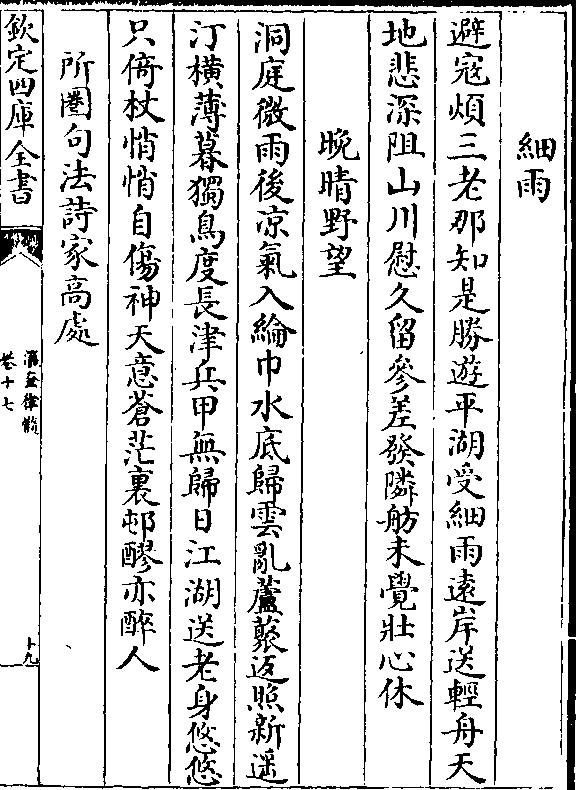 細雨
避寇煩三老那知是勝遊平湖受細雨遠岸送輕舟天
地悲深阻山川慰久留參差發隣舫未覺壯心休
晩晴野望
洞庭微雨後凉氣入綸巾水底歸雲亂蘆藂返照新遥
汀橫薄暮獨鳥度長津兵甲無歸日江湖送老身悠悠
只倚杖悄悄自傷神天意蒼茫裏邨醪亦醉人
所圏句法詩家高處
欽定四庫全書
瀛奎律髓
卷十七
十九